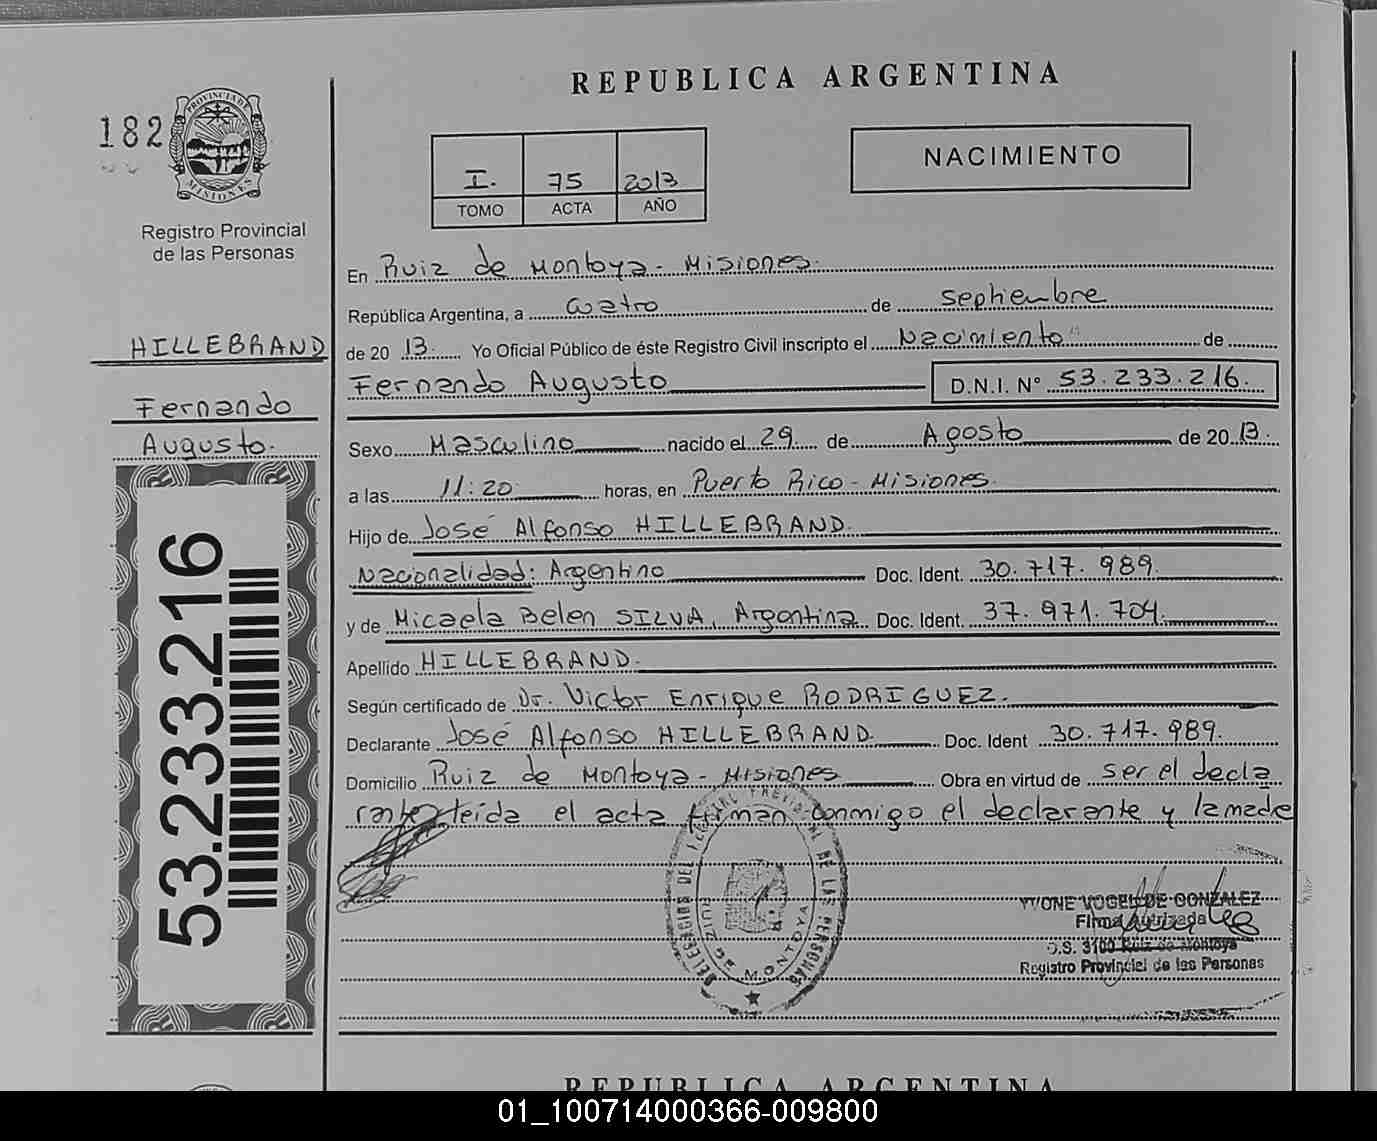 REPUBLICA ARGENTINA
182
PROVINCIA DE
MISIONES
Registro Provincial
de las Personas
I. 75 2013
TOMO ACTA AÑO
NACIMIENTO
En Ruiz de Montoya - Misiones.
República Argentina, a cuatro de septiembre
de 20 13. Yo Oficial Público de éste Registro Civil inscripto el Nacimiento de
Fernando Augusto D.N.I. N° 53.233.216.
HILLEBRAND
Fernando
Augusto.
53.233.216
Sexo Masculino nacido el 29 de Agosto de 20 13.
a las 11:20 horas, en Puerto Rico - Misiones.
Hijo de José Alfonso HILLEBRAND.
Nacionalidad: Argentino Doc. Ident. 30.717.989.
y de Micaela Belen SILVA, Argentina Doc. Ident. 37.971.704.
Apellido HILLEBRAND.
Según certificado de Dr. Victor Enrique RODRIGUEZ.
Declarante José Alfonso HILLEBRAND. Doc. Ident 30.717.989.
Domicilio Ruiz de Montoya - Misiones Obra en virtud de ser el decla
rante leida el acta firman conmigo el declarante y la madre
DE LAS PERSONAS
RUIZ DE MONTOYA
YVONE VOGEL DE GONZALEZ
Firma Autorizada
D.S. 3100 Ruiz de Montoya
Registro Provincial de las Personas
REPUBLICA ARGENTINA
01_100714000366-009800